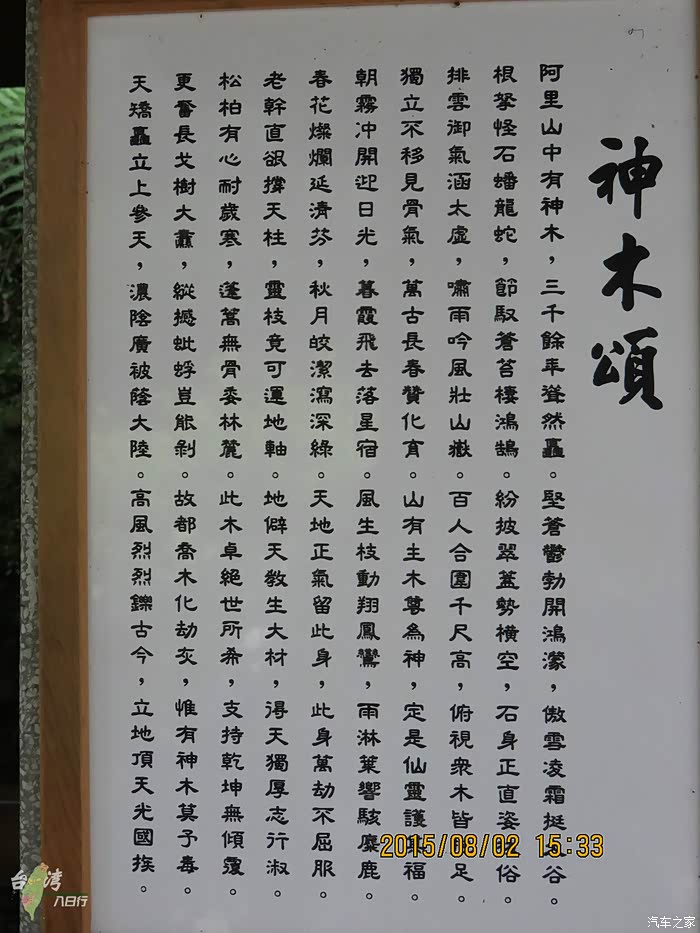 神木頌
阿里山中有神木，三千餘年聳然矗。堅蒼鬱勃開鴻濛，傲雪凌霜挺谷。
根拏怪石蟠龍蛇，節馭蒼苔棲鴻鵠。紛披翠蓋勢橫空，石身正直姿俗。
排雲御氣涵太虛，嘯雨吟風壯山嶽。百人合圍千尺高，俯視眾木皆足。
獨立不移見骨氣，萬古長春贊化育。山有主木尊為神，定是仙靈護福。
朝霧冲開迎日光，暮霞飛去落星宿。風生枝動翔鳳鸞，雨淋葉響駭麋鹿。
春花燦爛延清芬，秋月皎潔瀉深綠。天地正氣留此身，此身萬劫不屈服。
老幹直欲撐天柱，靈枝竟可運地軸。地僻天教生大材，得天獨厚志行淑。
松柏有心耐歲寒，蓬蒿無骨委林麓。此木卓絕世所希，支持乾坤無傾覆。
更奮長戈樹大纛，縱撼蚍蜉豈能剝。故都喬木化劫灰，惟有神木莫予毒。
天矯矗立上參天，濃陰廣被蔭大陸。高風烈烈鑠古今，立地頂天光國族。
2015/08/02 15:33
台灣
八日行
汽车之家